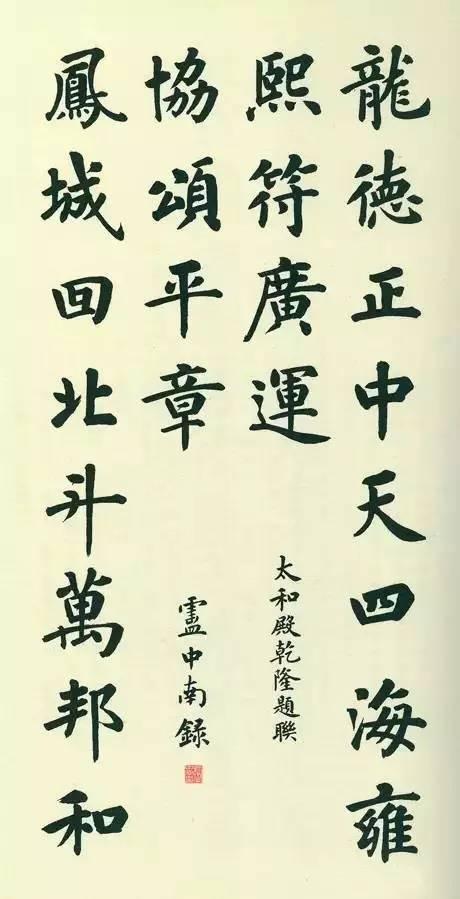 龍德正中天四海雍
熙符廣運
太和殿乾隆題聯
鳳城回北斗萬邦和
協頌平章
盧中南錄